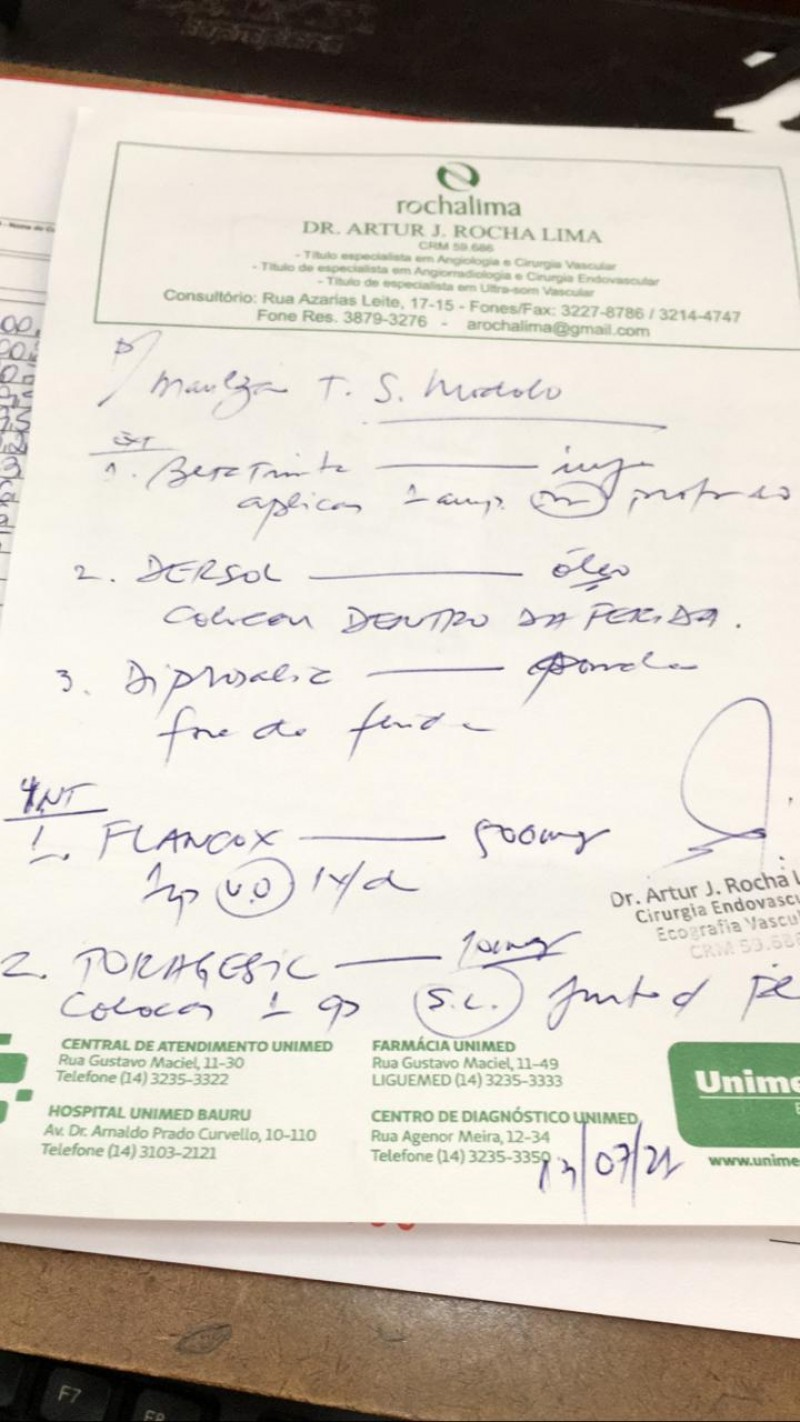 rochalima
DR. ARTUR J. ROCHA LIMA
CRM 59.686
- Título especialista em Angiologia e Cirurgia Vascular
- Título de especialista em Angiorradiologia e Cirurgia Endovascular
- Título de especialista em Ultra-som Vascular
Consultório: Rua Azarias Leite, 17-15 - Fones/Fax: 3227-8786 / 3214-4747
Fone Res. 3879-3276 - arochalima@gmail.com
P/ T. S. Modolo
EXT
1. Betatrinta inj
aplicar 1 amp. IM profundo
2. DERSOL óleo
colocar DENTRO DA FERIDA.
3. Diprosalic pomada
fora da ferida
INT
1. FLANCOX 500mg
1 cp V.O 1x/d
2. TORAGESIC 10mg
Colocar 1 cp S.L.
Dr. Artur J. Rocha
Cirurgia
Ecografia
CRM 59.686
CENTRAL DE ATENDIMENTO UNIMED
Rua Gustavo Maciel, 11-30
Telefone (14) 3235-3322
HOSPITAL UNIMED BAURU
Av. Dr. Arnaldo Prado Curvello, 10-110
Telefone (14) 3103-2121
FARMÁCIA UNIMED
Rua Gustavo Maciel, 11-49
LIGUEMED (14) 3235-3333
CENTRO DE DIAGNÓSTICO UNIMED
Rua Agenor Meira, 12-34
Telefone (14) 3235-3350
/07/21
F7
F8